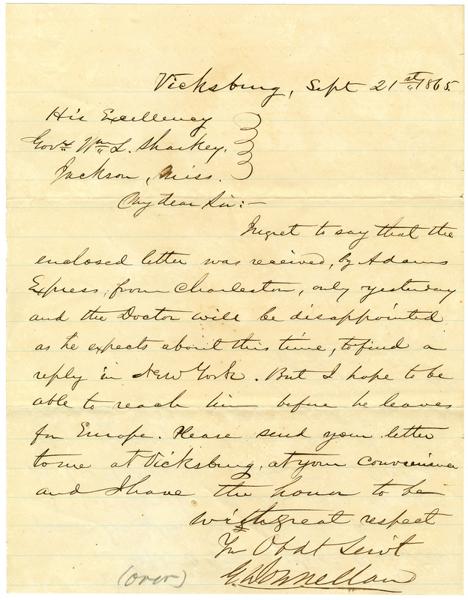 Vicksburg, Sept 21st 1865
His Excellency
Govr. Wm. L. Sharkey,
Jackson, Miss.
My dear Sir:—
I regret to say that the
enclosed letter was received, by Adams
Express, from Charleston, only yesterday
and the Doctor will be disappointed
as he expects about this time, to find a
reply in New York. But I hope to be
able to reach him before he leaves
for Europe. Please send your letter
to me at Vicksburg, at your convenience
and I have the honor to be
with great respect
Yr Obdt Servt
Donnellan
(over)